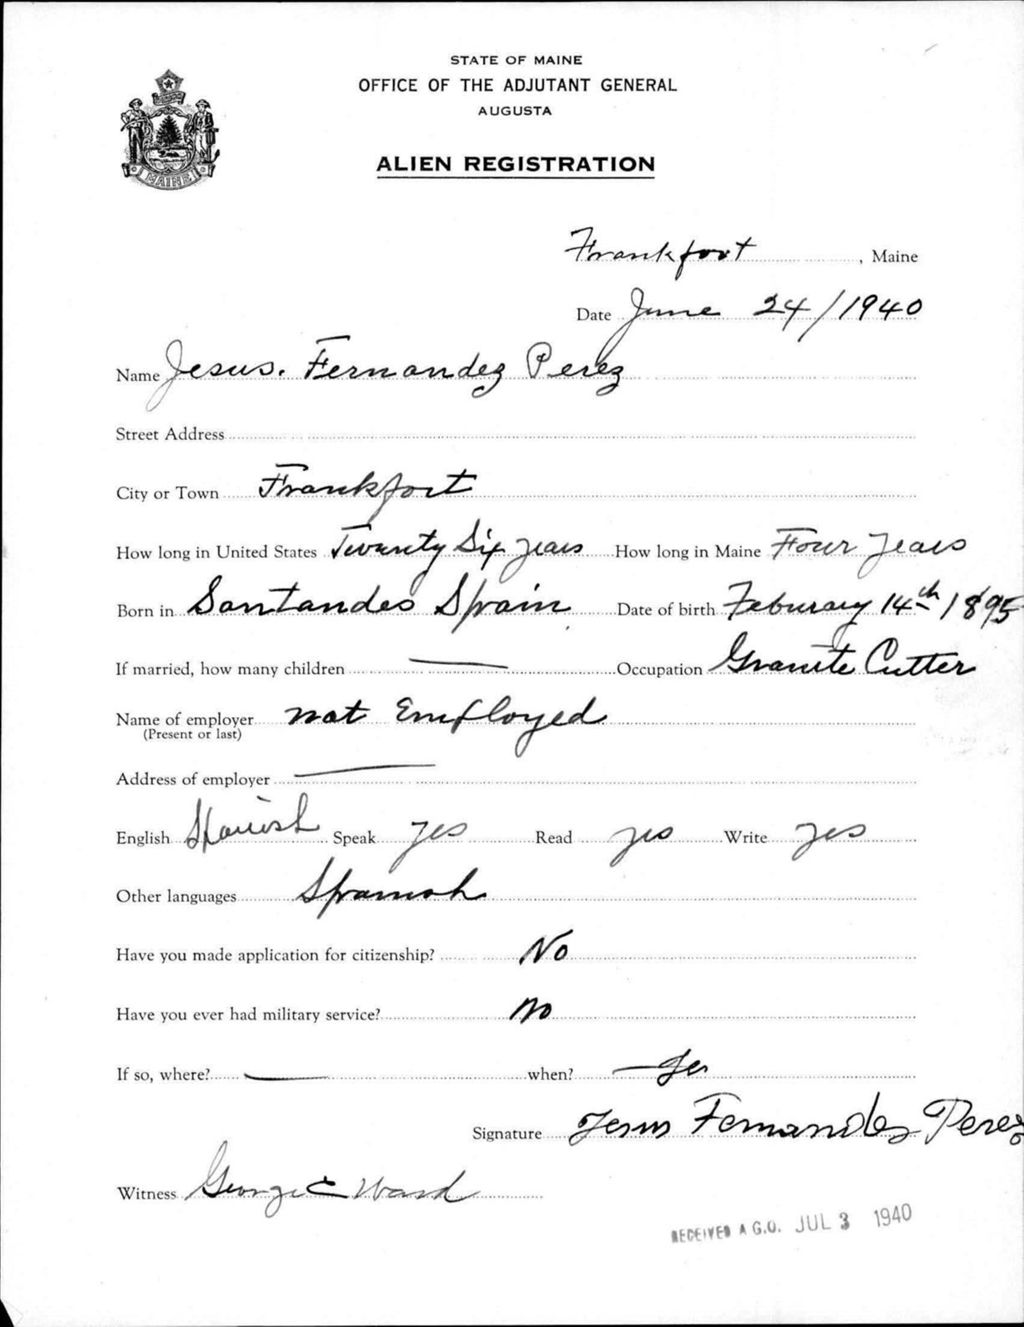 STATE OF MAINE
OFFICE OF THE ADJUTANT GENERAL
AUGUSTA
ALIEN REGISTRATION
MAINE
Frankfort, Maine
Date June 24/1940
Name Jesus. Fernandez Perez
Street Address
City or Town Frankfort
How long in United States Twenty Six years How long in Maine Four Years
Born in Santandes Spain Date of birth Feburary 14th 1895
If married, how many children — Occupation Granite Cutter
Name of employer not Employed
(Present or last)
Address of employer —
English Spanish Speak yes Read yes Write yes
Other languages Spanish
Have you made application for citizenship? No
Have you ever had military service? No
If so, where? — when? —
Signature Jesus Fernandez Perez
Witness George C Ward
RECEIVED A.G.O. JUL 3 1940